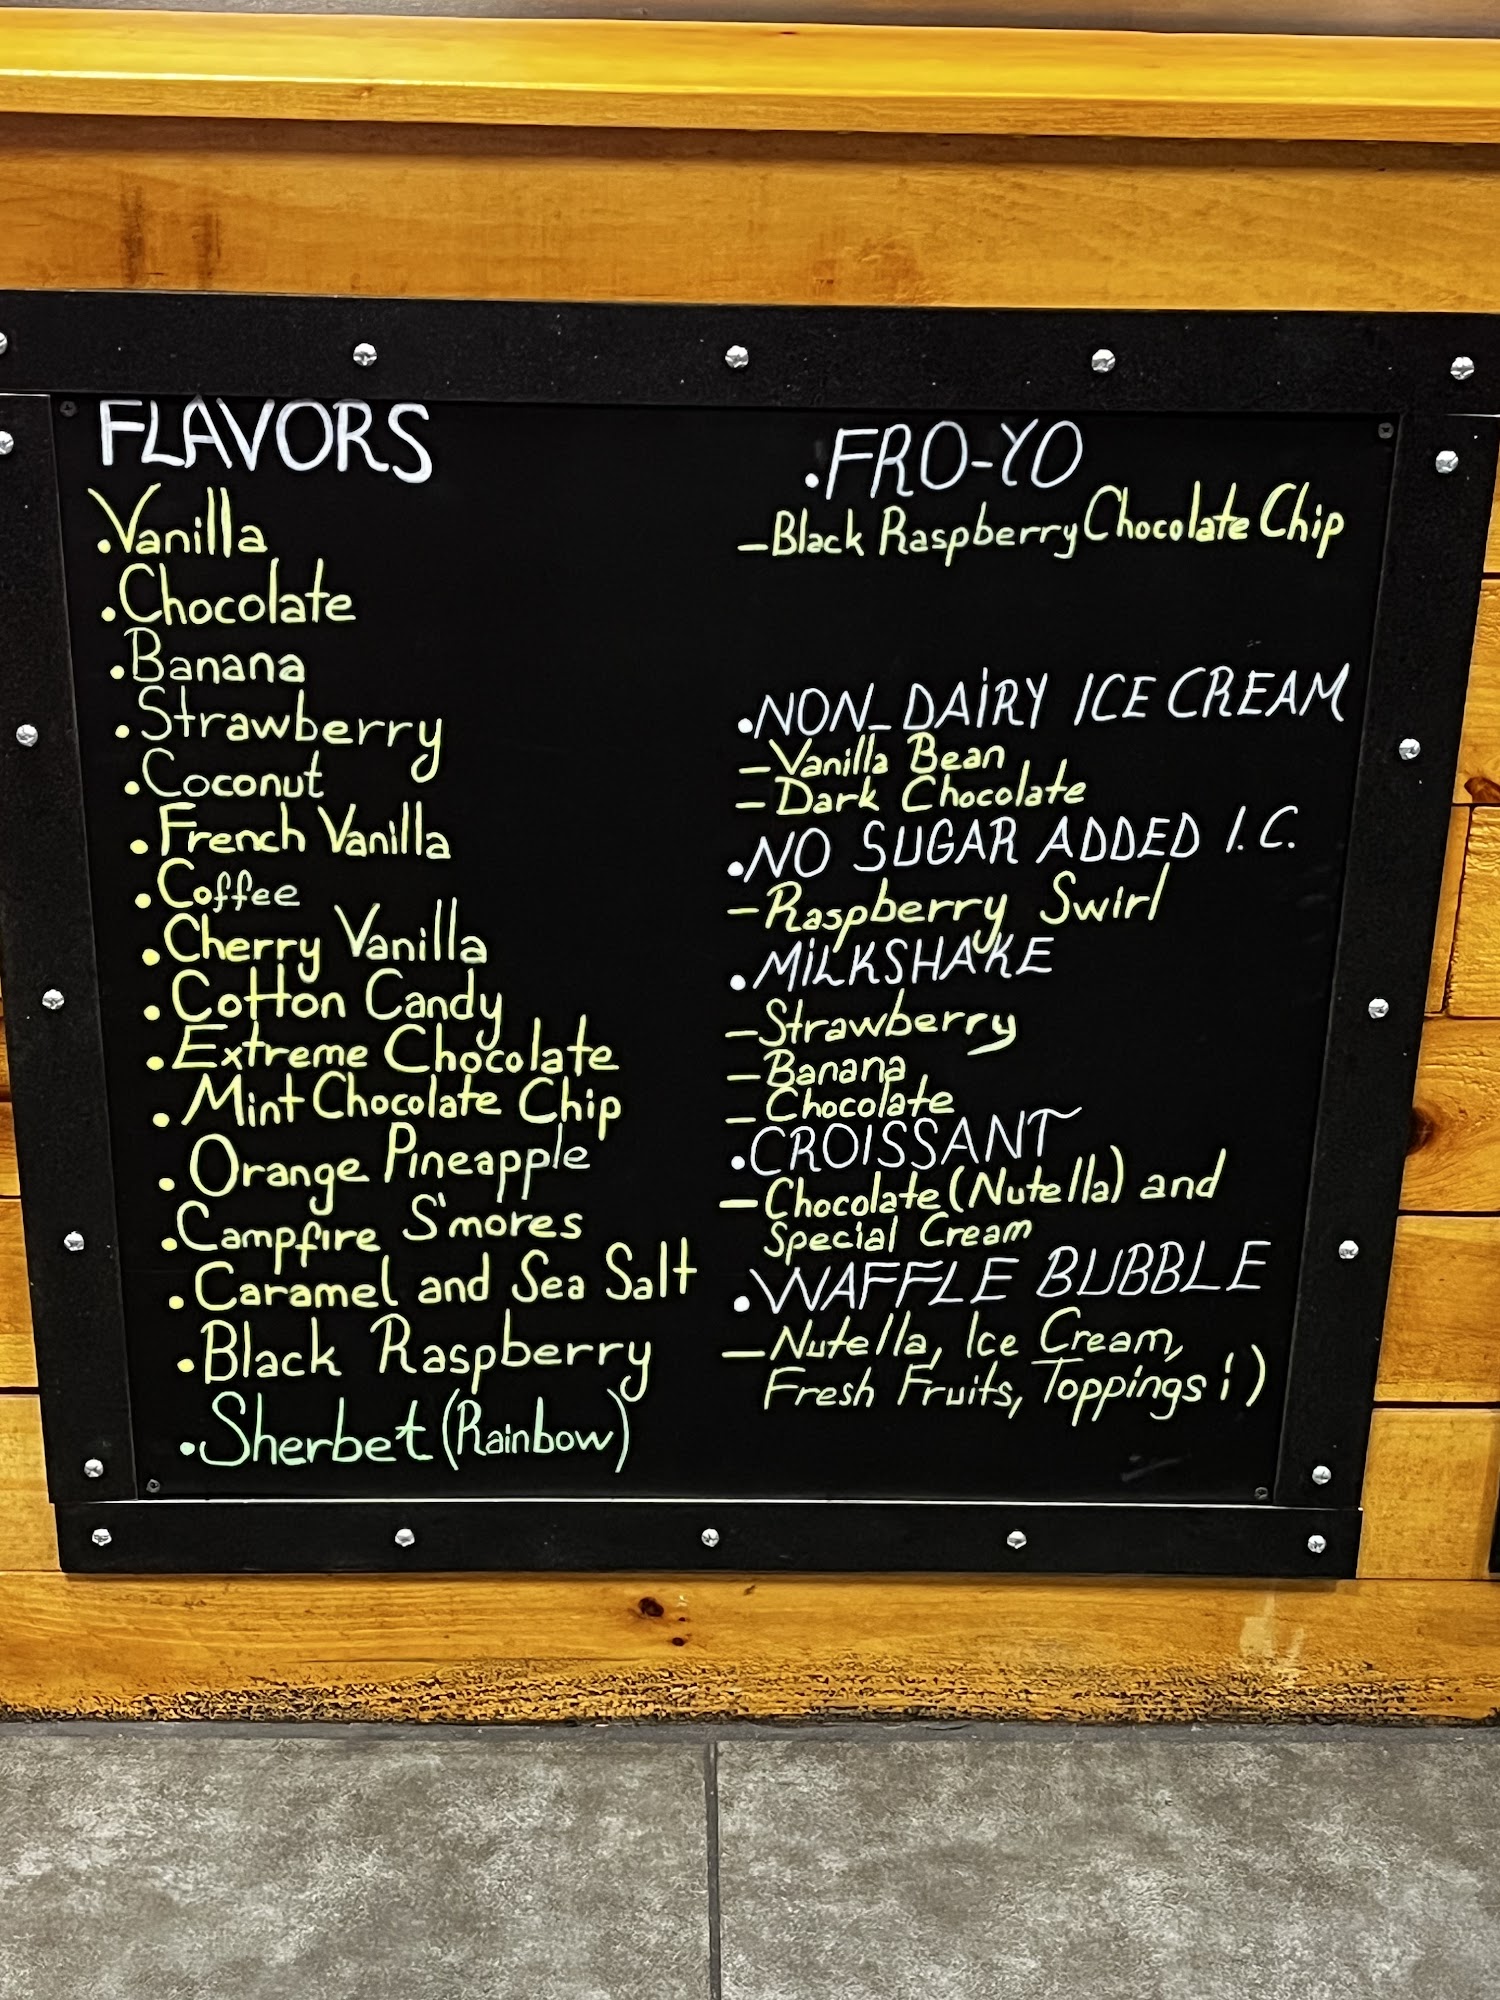 FLAVORS
•Vanilla
•Chocolate
•Banana
•Strawberry
•Coconut
•French Vanilla
•Coffee
•Cherry Vanilla
•Cotton Candy
•Extreme Chocolate
•Mint Chocolate Chip
•Orange Pineapple
•Campfire S'mores
•Caramel and Sea Salt
•Black Raspberry
•Sherbet (Rainbow)
•FRO-YO
–Black Raspberry Chocolate Chip
•NON-DAiRY ICE CREAM
–Vanilla Bean
–Dark Chocolate
•NO SUGAR ADDED I.C.
–Raspberry Swirl
•MiLKSHAKE
–Strawberry
–Banana
–Chocolate
•CROISSANT
–Chocolate (Nutella) and
Special Cream
•WAFFLE BUBBLE
–Nutella, Ice Cream,
Fresh Fruits, Toppings ;)